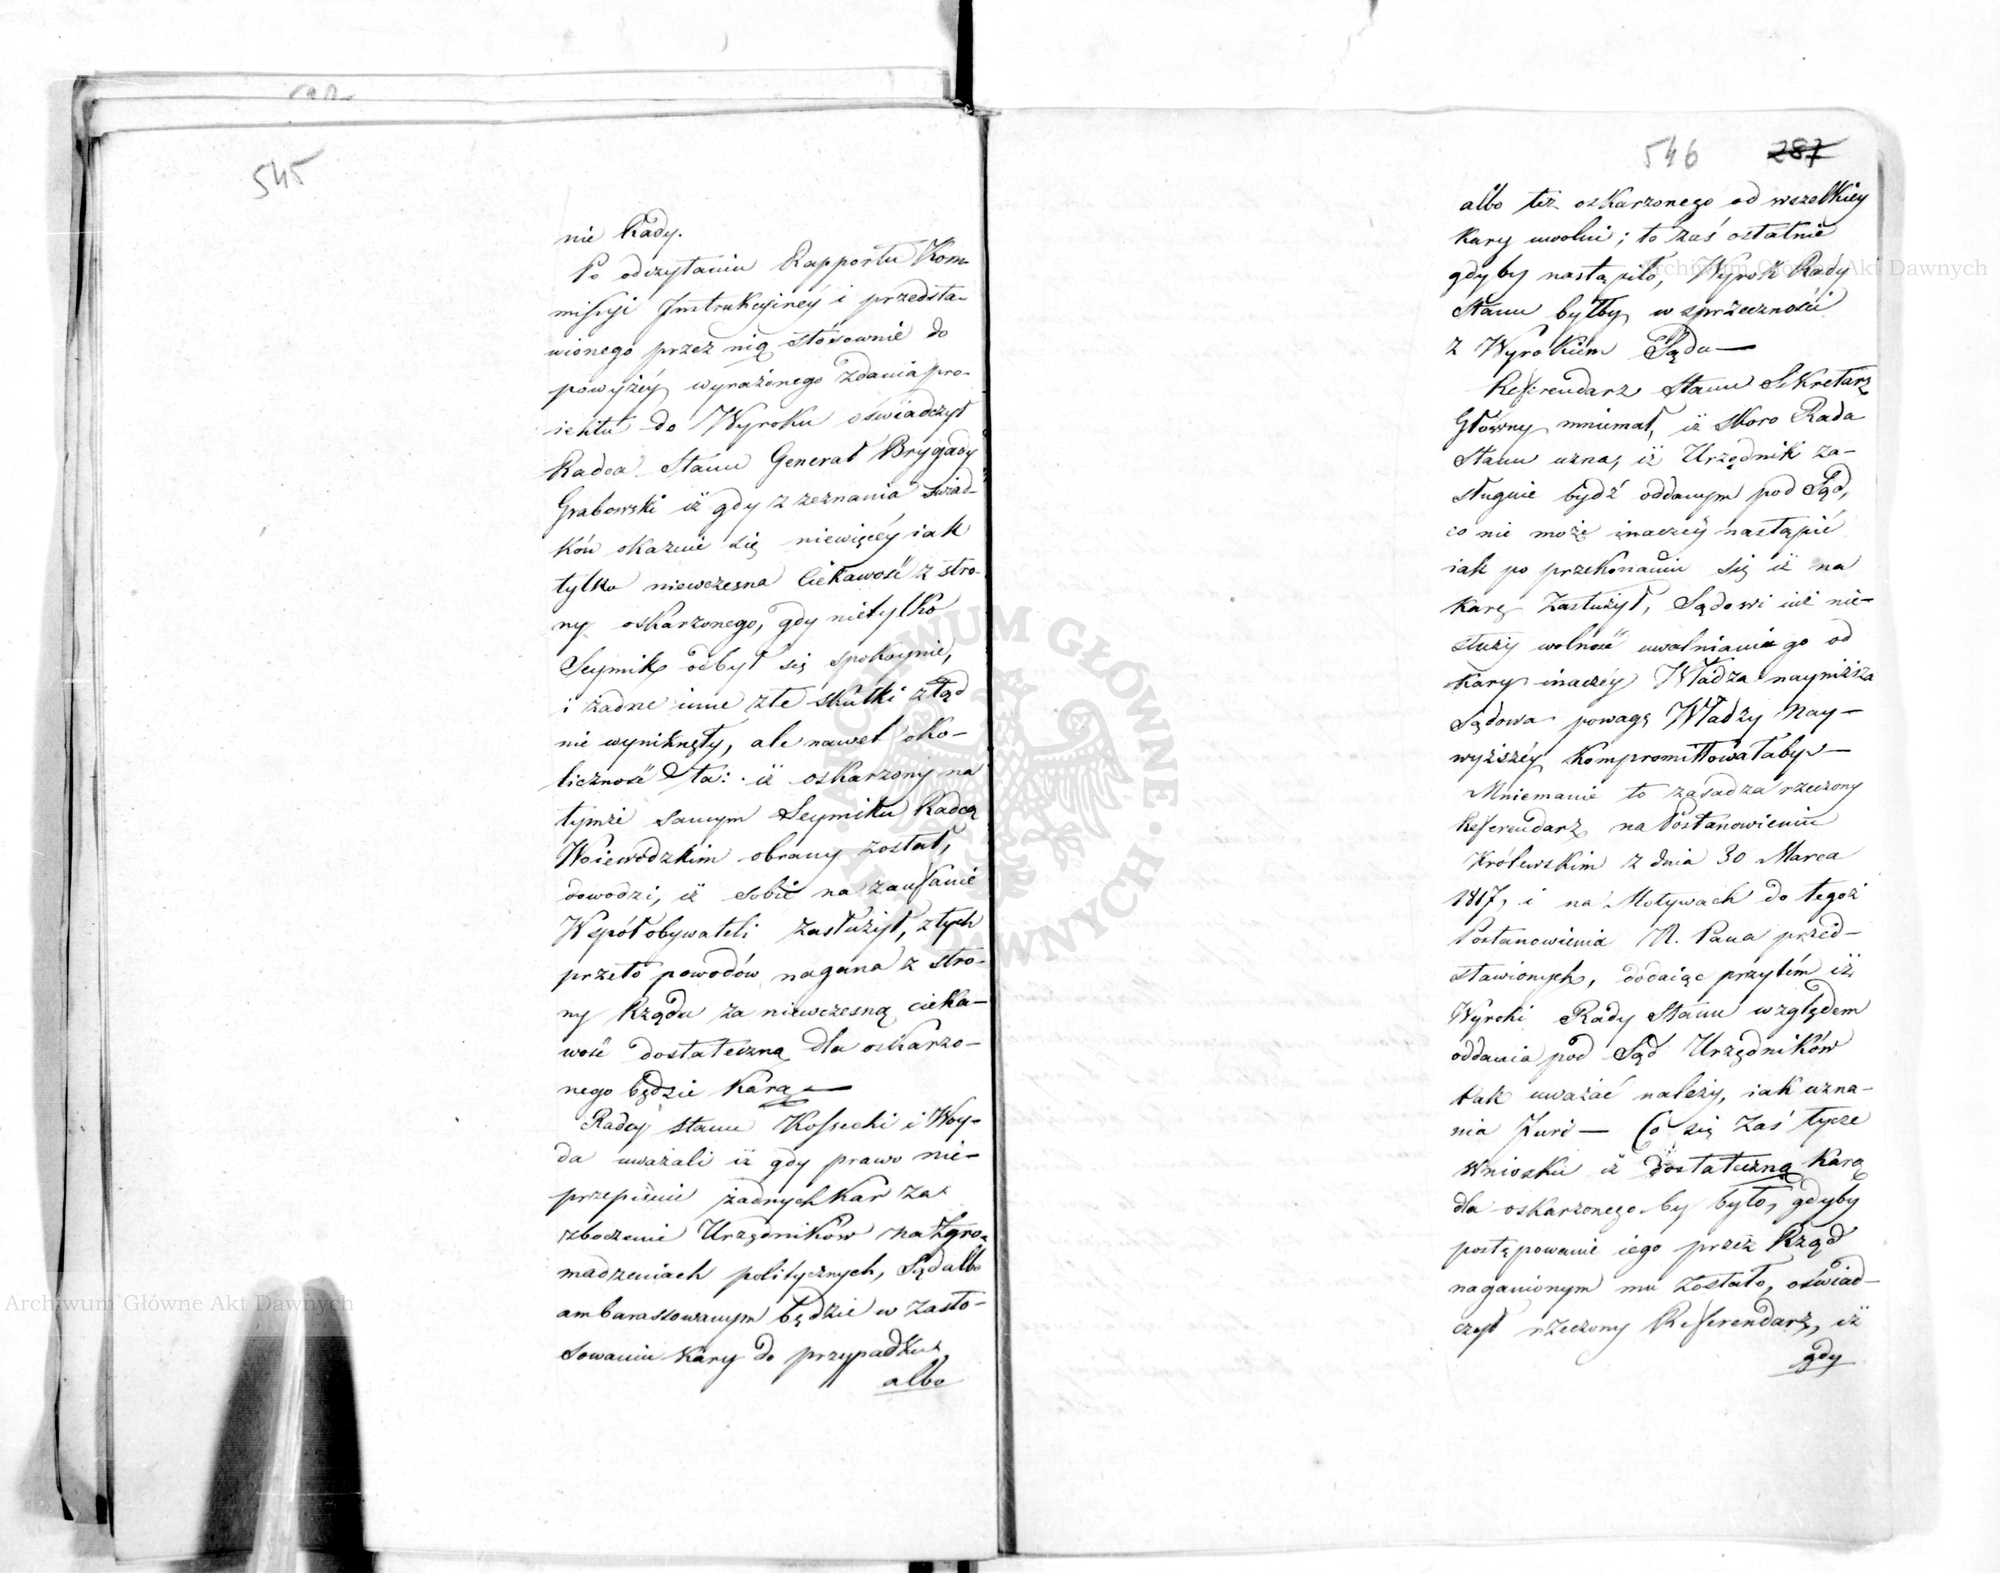 545
nie Rady.
Po odczytaniu Rapportu Kom-
missyi Instrukcyinéy i przedsta-
wionego przez nią stosownie do
powyżéy wyrażonego zdania pro-
iektu do Wyroku oświadczył
Radca Stanu Generał Brygady
Grabowski iż gdy z zeznania świad-
ków okazuie się niewięcéy iak
tylko niewczesna ciekawość z stro-
ny oskarzonego, gdy nietylko
Seymik odbył się spokoynie,
i żadne inne złe skutki ztąd
nie wyniknęły, ale nawet oko-
liczność ta: iż oskarzony na
tymże samym Seymiku Radcą
Woiewódzkim obrany został,
dowodzi, iż sobie na zaufanie
Współobywateli zasłużył, z tych
przeto powodów nagana z stro-
ny Rządu za niewczesną cieka-
wość dostateczną dla oskarzo-
nego będzie karą —
Radcy Stanu Kossecki i Woy-
da uważali iż gdy prawo nie-
przepisuie żadnych kar za
zboczenie Urzędników na Zgro-
madzeniach politycznych, Sąd albo
ambarassowanym będzie w zasto-
sowaniu kary do przypadku,
albo
546 287
albo też oskarzonego od wszelkiéy
kary uwolni; to zaś ostatnie
gdyby nastąpiło, Wyrok Rady
Stanu byłby w sprzeczności
z Wyrokiem Sądu —
Referendarz Stanu Sekretarz
Główny mniemał, iż skoro Rada
Stanu uzna, iż Urzędnik za-
sługuie bydź oddanym pod Sąd,
co nie może inaczéy nastąpić
iak po przekonaniu się iż na
karę zasłużył, Sądowi iuż nie-
służy wolność uwalniania go od
kary inaczéy Władza nayniższa
Sądowa powagę Władzy Nay-
wyższéy kompromittowałaby —
Mniemanie to zasadza rzeczony
Referendarz na Postanowieniu
Królewskim z dnia 30 Marca
1817, i na Motywach do tegoż
Postanowienia N. Panu przed-
stawionych, dodaiąc przytém iż
Wyroki Rady Stanu względem
oddania pod Sąd Urzędników
tak uważać należy, iak uzna-
nia Juri — Co się zaś tycze
wniosku iż dostateczną karą
dla oskarzonego by było, gdyby
postępowanie iego przez Rząd
naganionym mu zostało, oświad-
czył rzeczony Referendarz, iż
gdy
Archiwum Główne Akt Dawnych
Archiwum Główne Akt Dawnych
ARCHIWUM GŁÓWNE AKT DAWNYCH